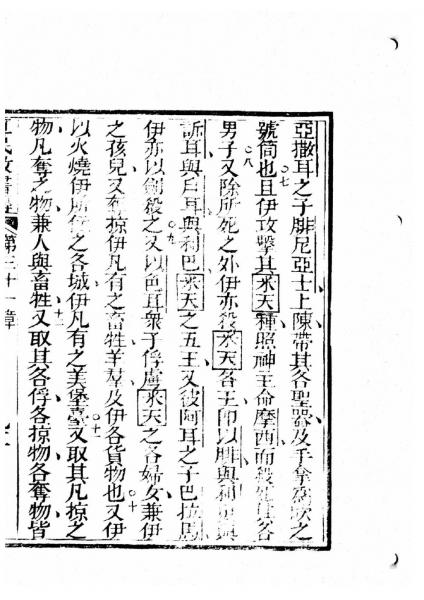 亞撒耳之子腓尼亞士上陳帶其各聖器及手拿爲吹之
○七
號筒也且伊攻擊其米天種照神主命摩西而殺其各
○八
男子又除所死之外伊亦殺米天各王即以腓與利與
訴耳與戶耳與利巴米天之五王又彼阿耳之子巴拉馬
○九
伊亦以劍殺之又以色耳衆子俘虜米天之各婦女兼伊
之孩兒又奪掠伊凡有之畜牲羊羣及伊各貨物也又伊
○十
以火燒伊所住之各城伊凡有之美堡臺又取其凡掠之
○十一
物凡奪之物兼人與畜牲又取其各俘各掠物各奪物皆
○十二
第三十一章